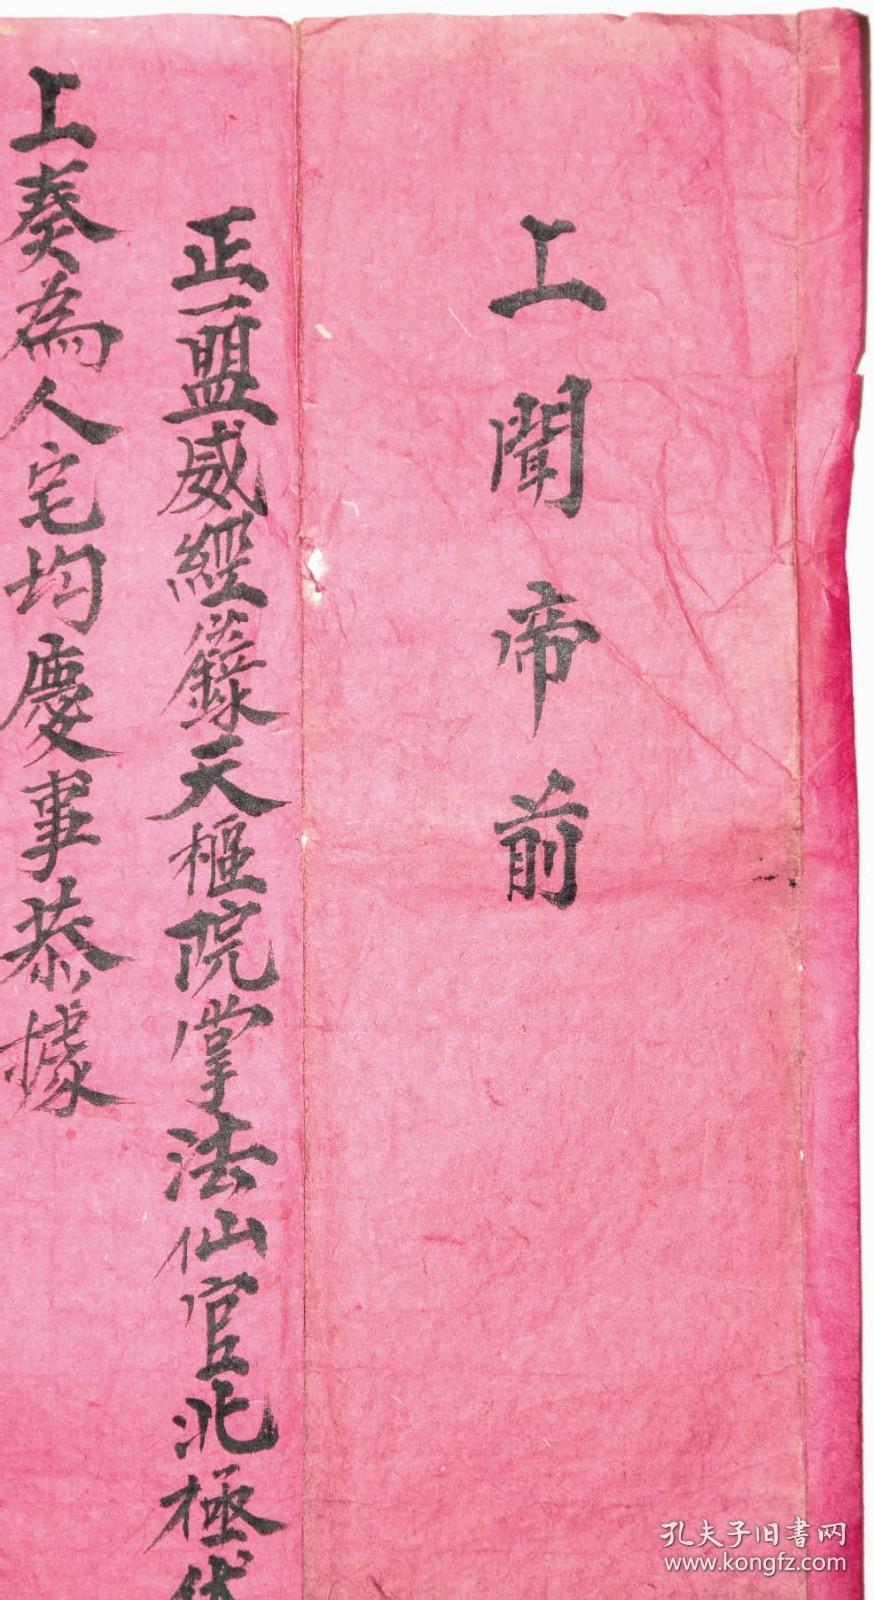 上聞帝前
正一盟威經籙天樞院掌法仙官北極
上奏為人宅均慶事恭據
孔夫子旧書网
www.kongfz.com